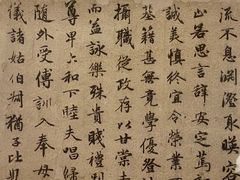 流不息淵澄取暎容
止若思言辭安定篤
誠美慎終宜令榮業
基籍甚無竟學優登
攝職從政存以甘棠去
而益詠樂殊貴賤禮別
尊卑上和下睦夫唱婦
隨外受傅訓入奉母
儀諸姑伯叔猶子比兒